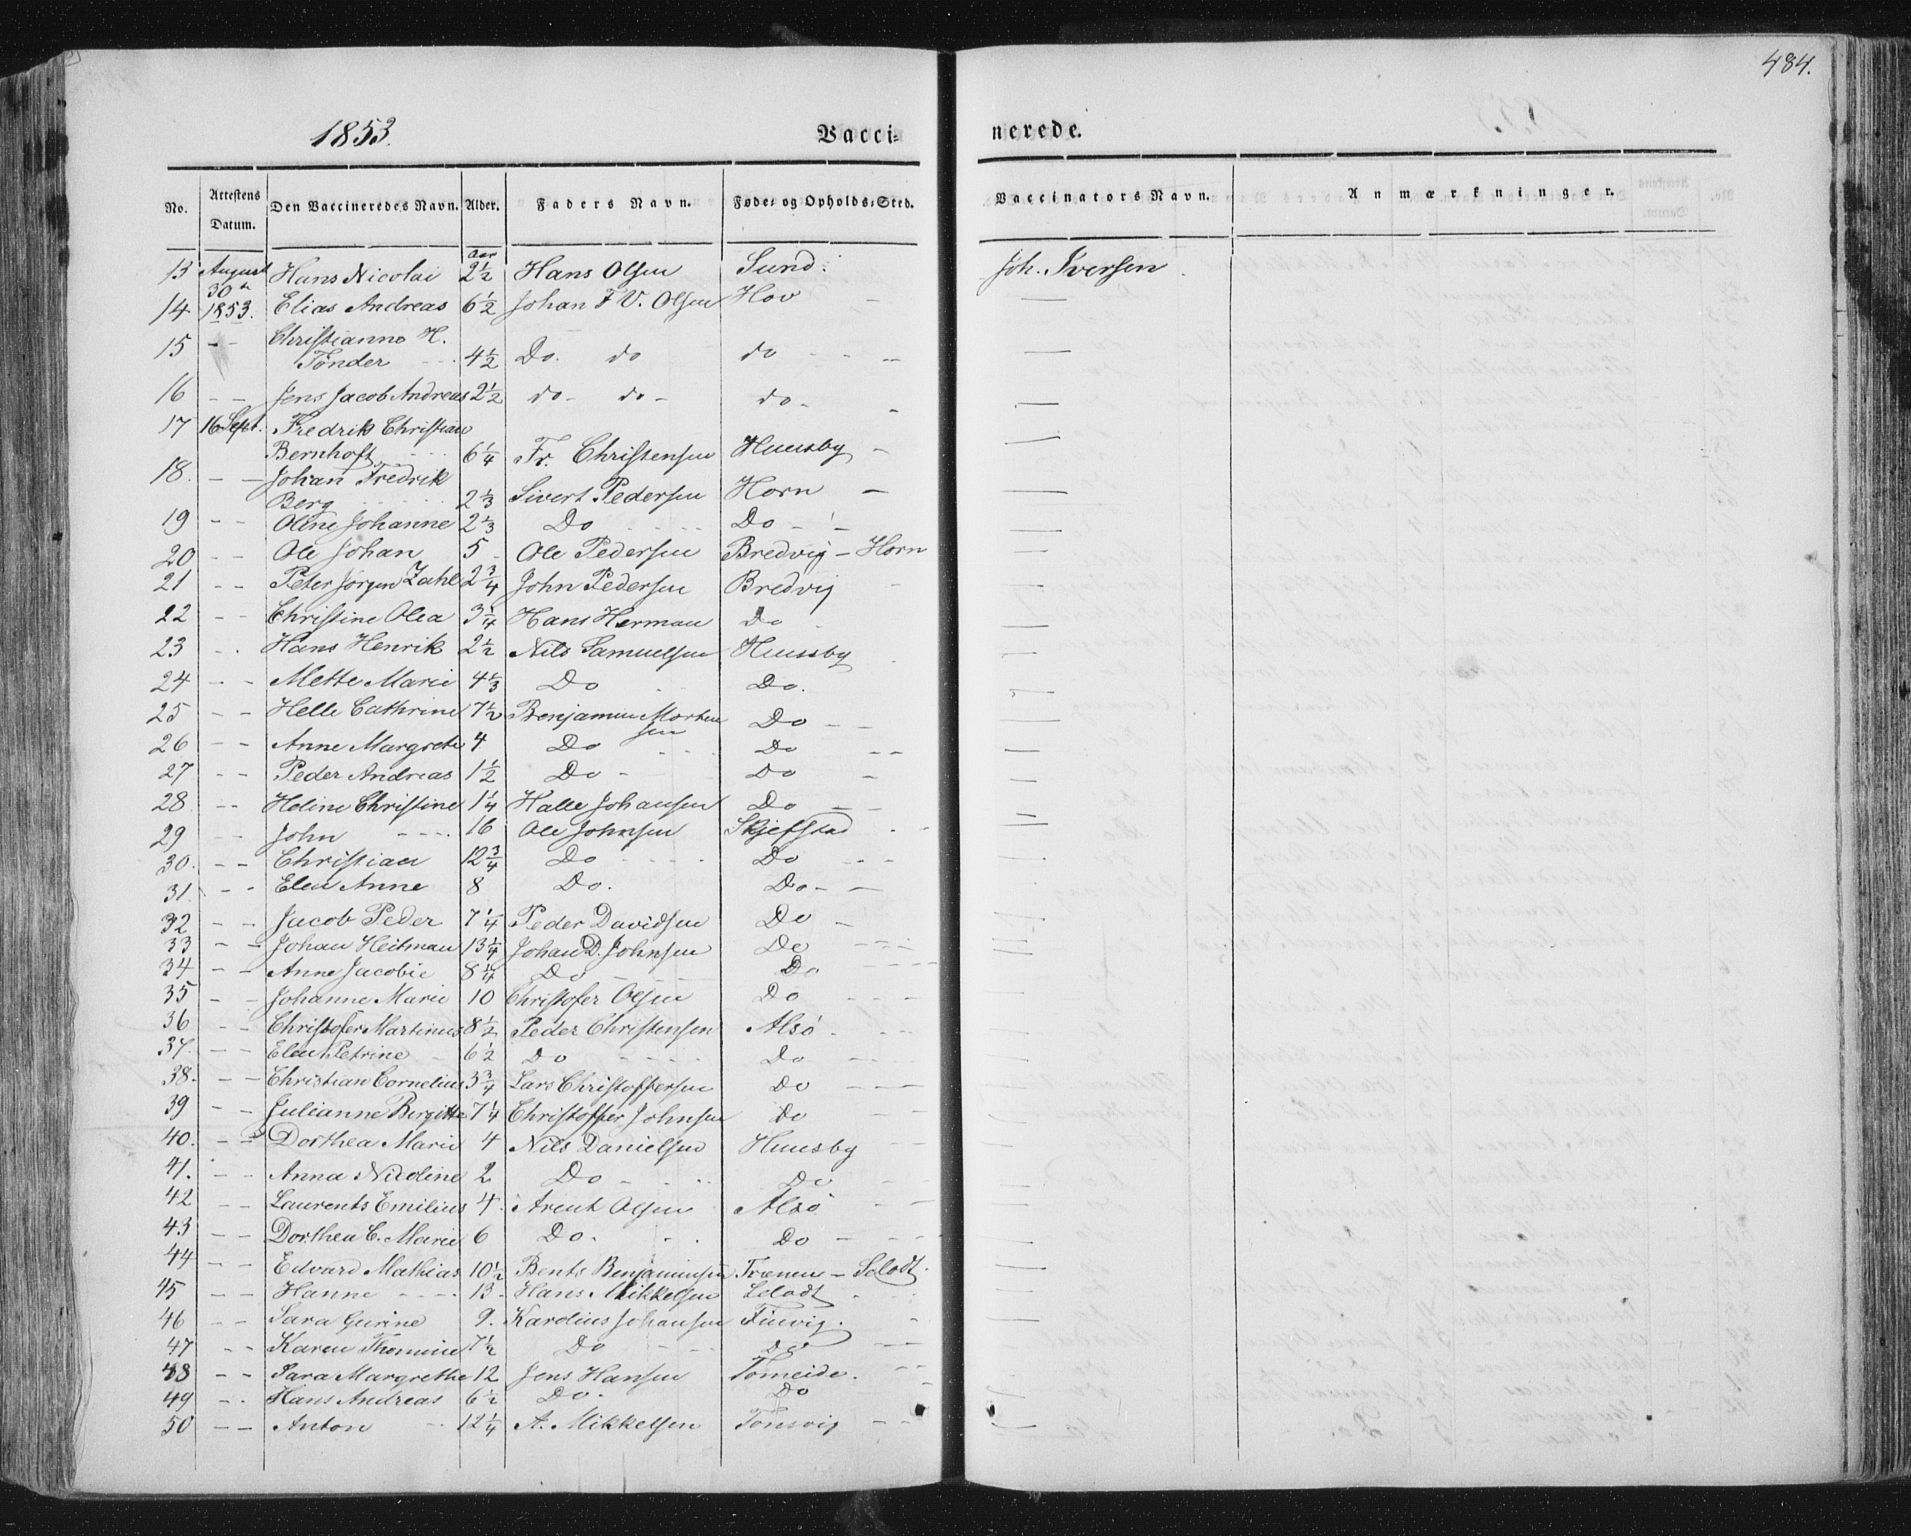 484.
1853. Vacci- nerede.
No. Attestens Datum. Den Vaccineredes Navn. Alder. Faders Navn. Føde- og Opholds-Sted. Vaccinators Navn. Anmærkninger.
Aar
13 August Hans Nicolai 2½ Hans Olsen Sund. Joh. Iversen
30te
14 1853. Elias Andreas 6½ Johan F V. Olsen Hov — —
15 - - Christianna H.
Tönder 4½ Do. do do - - —
16 - - Jens Jacob Andreas 2½ do - do - do - —
17 16 Sept. Fredrik Christian
Bernhoft 6¼ Fr. Christensen Huusby — —
18. - - Johan Fredrik
Berg 2⅓ Sivert Pedersen Horn — —
19 - - Oline Johanne 2⅓ Do Do - - —
20 - - Ole Johan 5 Ole Pedersen Bredvig - Horn —
21 - - Peter Jörgen Zahl 2¾ John Pedersen Bredvig —
22 - - Christine Olea 3¼ Hans Herman Do —
23 - - Hans Henrik 2½ Nils Samuelsen Huusby —
24 - - Mette Marie 4⅓ Do Do. —
25 - - Helle Cathrine 7½ Benjamin Morten Do - - —
sen
26 - - Anne Margrete 4 Do Do - - —
27 - - Peder Andreas 1½ Do - Do — —
28 - - Heline Christine 1¼ Halle Johansen Do — — —
29 - - John - - - 16 Ole Johnsen Skjefstad - - —
30. - - Christian 12¾ Do Do - -
31. - - Elen Anne 8 Do. Do - —
32 - - Jacob Peder 7¼ Peder Davidsen Do —
33 - - Johan Heitman 13¼ Johan D. Johnsen Do - - - —
34 - - Anne Jacobie 8¼ Do - - Do - - - —
35 - - Johanne Marie 10 Christofer Olsen Do - - - —
36 - - Christofer Martinus 8½ Peder Christensen Alsö - - - —
37. - - Elen Petrine 6½ Do Do - - —
38. - - Christian Cornelius 3¾ Lars Christoffersen do - - - —
39 - - Julianne Bergitte 7¼ Christoffer Johnsen do —
40. - - Dorthea Marie 4 Nils Danielsen Huusby —
41. - - Anna Nicoline 2 Do - - - Do - - —
42 - - Laurents Emilius 4. Arent Olsen Alsö - - —
43 - - Dorthea C. Marie 6 Do. - - Do - - - —
44 - - Edvard Mathias 10½ Bents Benjaminsen Trænen - Selodt. —
45 - - Hanne - - - 13 - Hans Mikkelsen Selodt - - —
46 - - Sara Gurine 9. Karolius Johansen Finvig. - —
47 - - Karen Thomine 7½ Do - - do - - —
48 - - Sara Margrethe 12 Jens Hansen Tomeide. - - —
49 - - Hans Andreas 6½ Do - Do - —
50 - - Anton - 12¼ A. Mikkelsen Tonsvig - - —